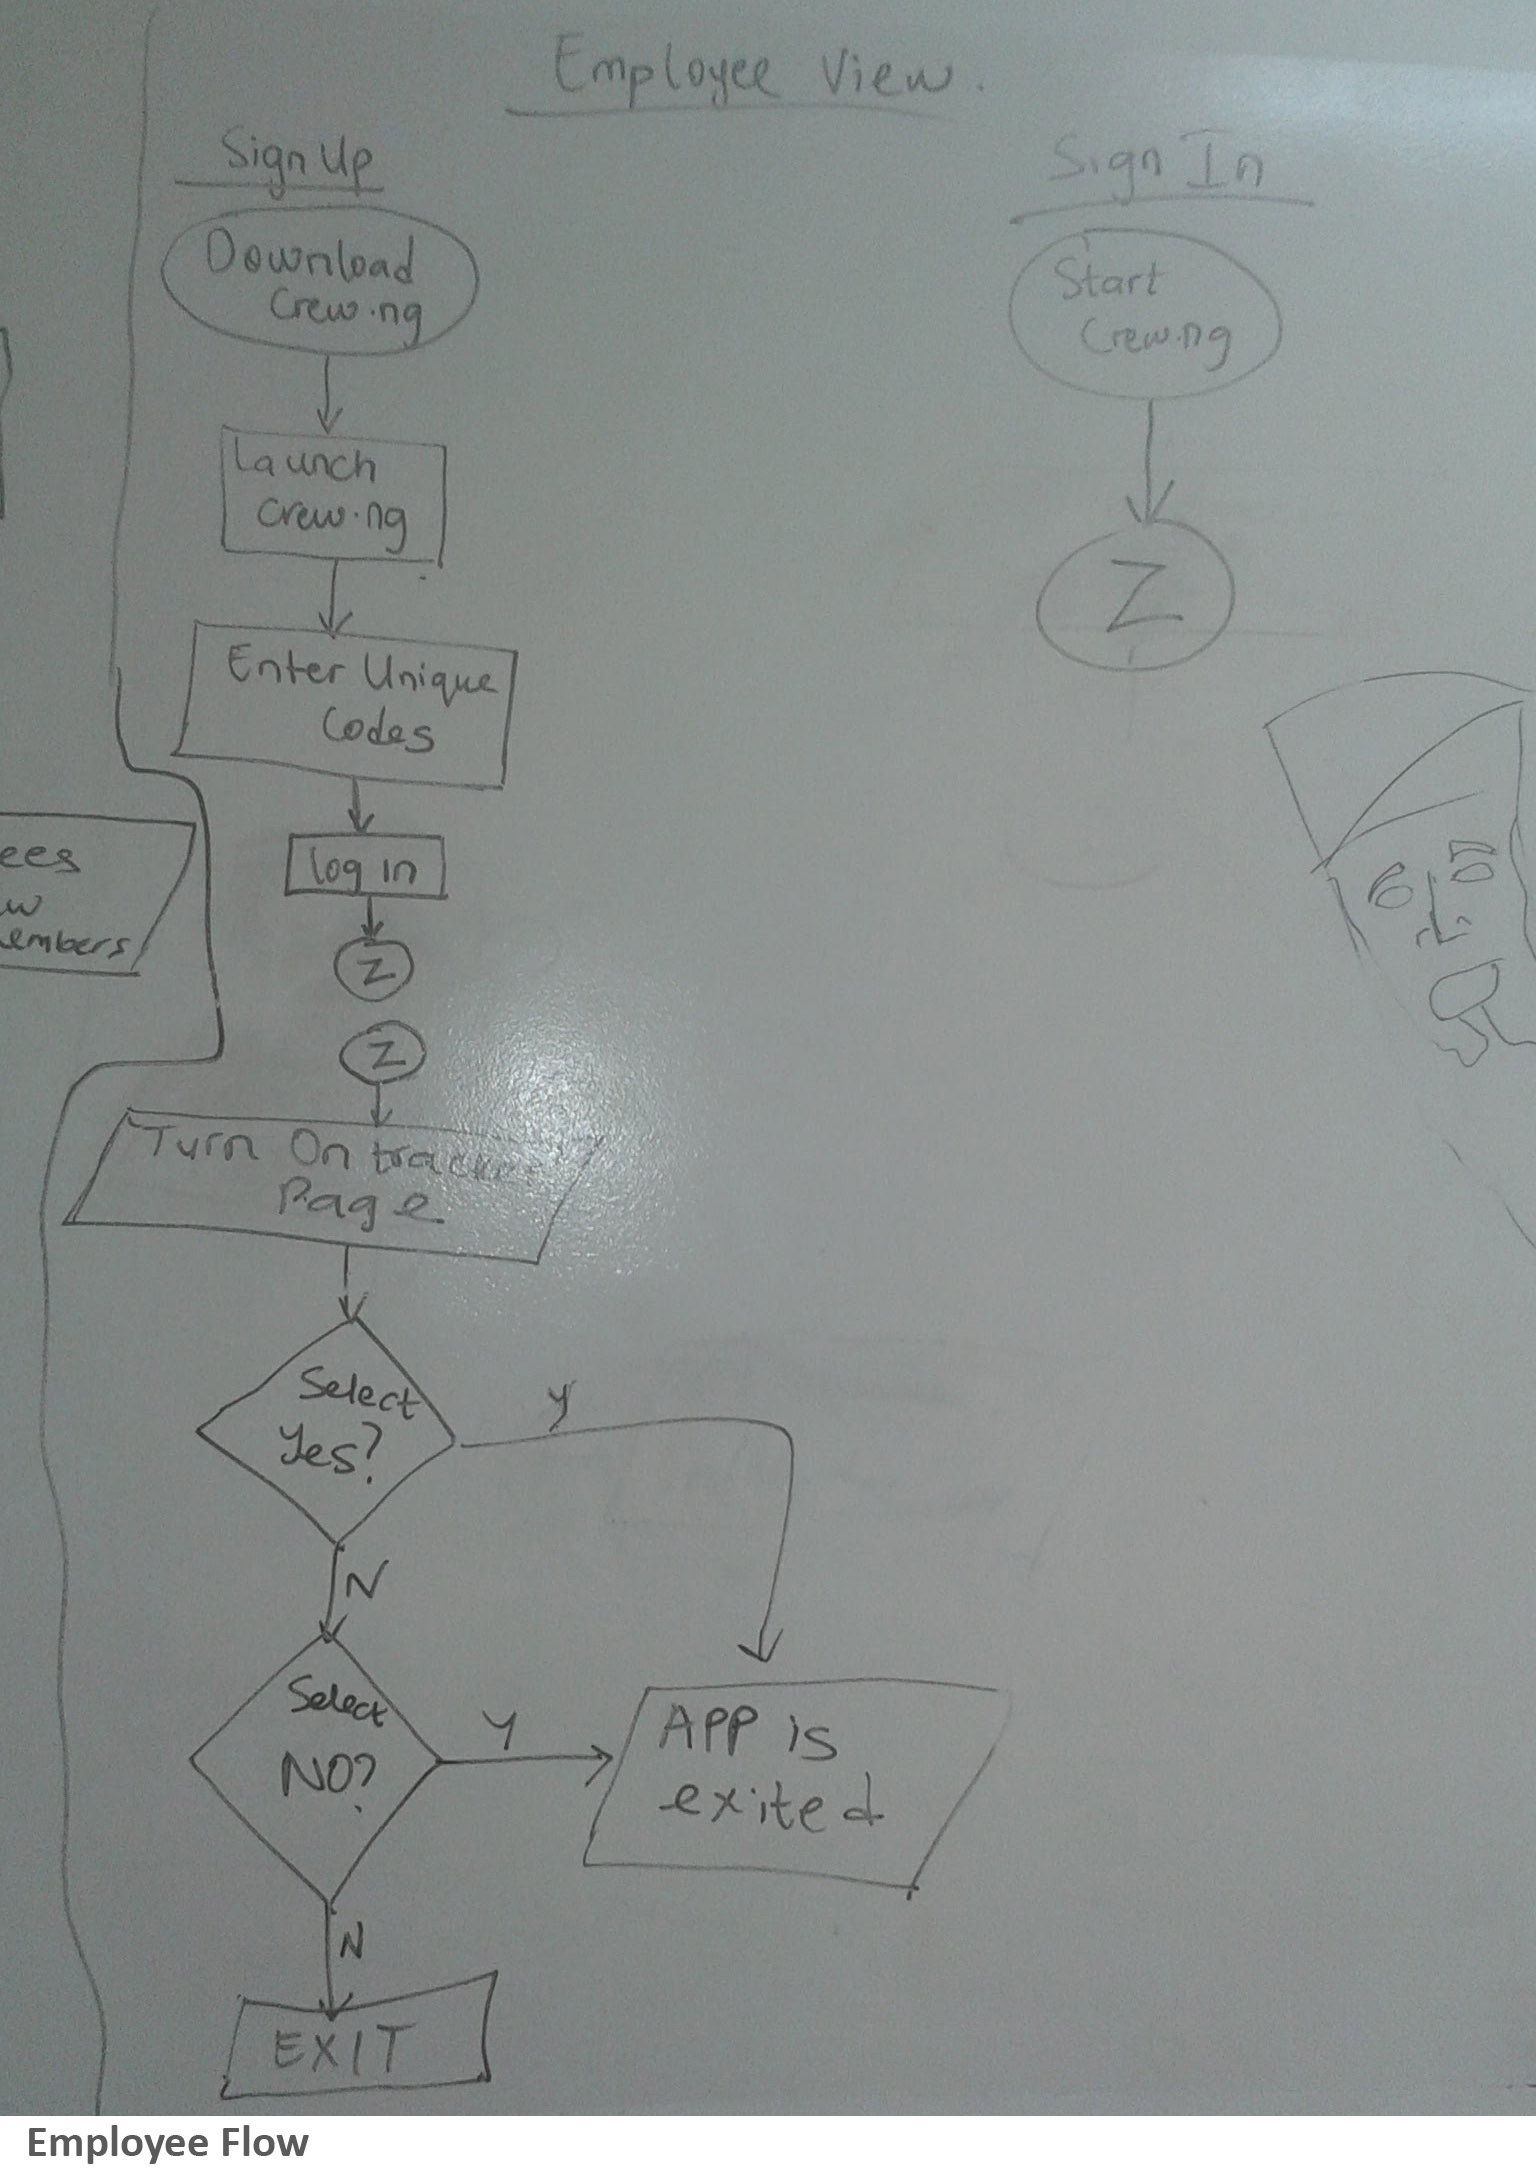 Employee View.
Sign Up
Download
Crew.ng
Launch
Crew.ng
Enter Unique
Codes
log in
Z
Z
Turn On tracker
Page
Select
Yes?
Y
N
Select
NO?
Y
N
APP is
exited
EXIT
Sign In
Start
Crew.ng
Z
ees
w
embers
Employee Flow